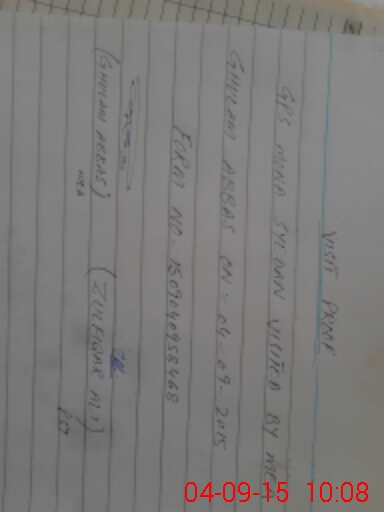 VISIT PROOF
GPS MINA SYEDAN VISITED BY MEA
GHULAM ABBAS ON - 04-09-2015
FORM NO. 1509040958468
(GHULAM ABBAS) (ZULFIQAR ALI)
MEA PST
04-09-15 10:08